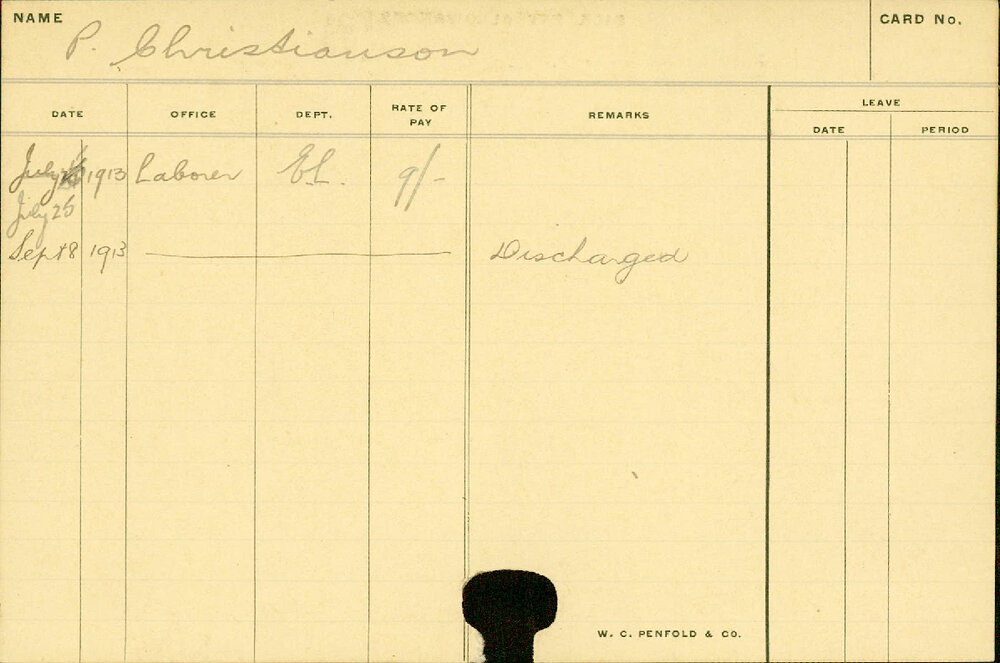 NAME
P. Christianson
CARD No.
DATE OFFICE DEPT. RATE OF PAY REMARKS LEAVE DATE PERIOD
July 1913 Laborer E.L. 9/-
July 25
Sept 8 1913 Discharged
W. C. PENFOLD & CO.